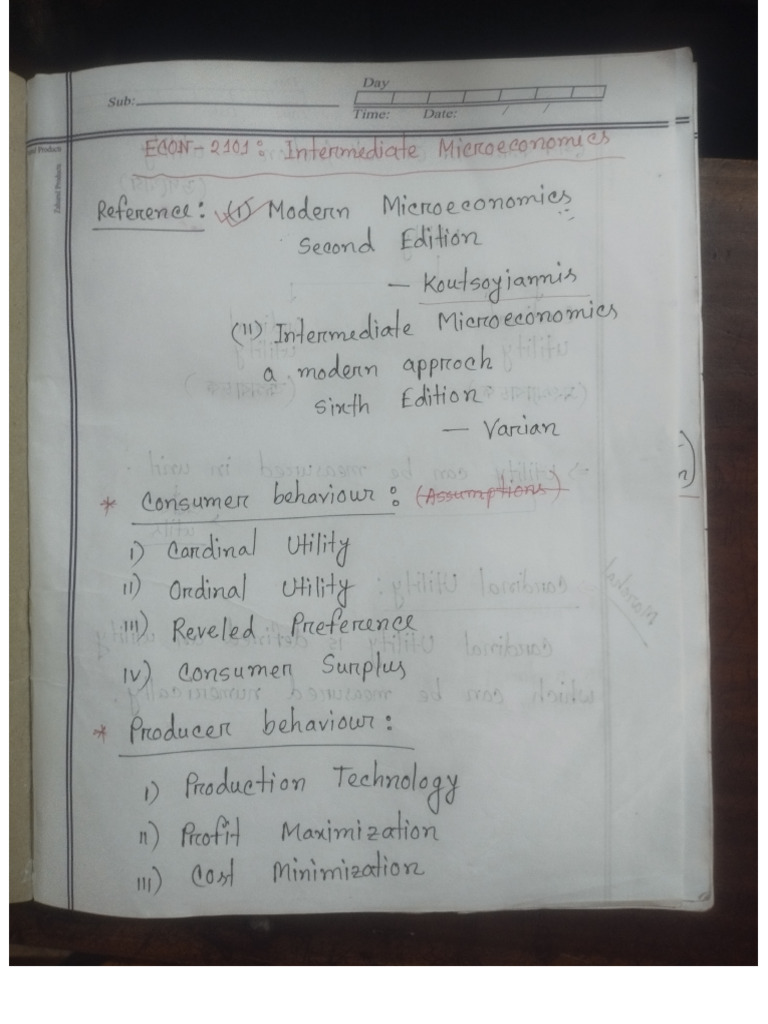 Day
Sub:
Time: Date: / /
ECON-2101: Intermediate Microeconomics
Reference: (I) Modern Microeconomics
Second Edition
— Koutsoyiannis
(II) Intermediate Microeconomics
a modern approch
sixth Edition
— Varian
* Consumer behaviour: (Assumptions)
i) Cardinal Utility
ii) Ordinal Utility
iii) Reveled Preference
iv) Consumer Surplus
* Producer behaviour:
i) Production Technology
ii) Profit Maximization
iii) Cost Minimization